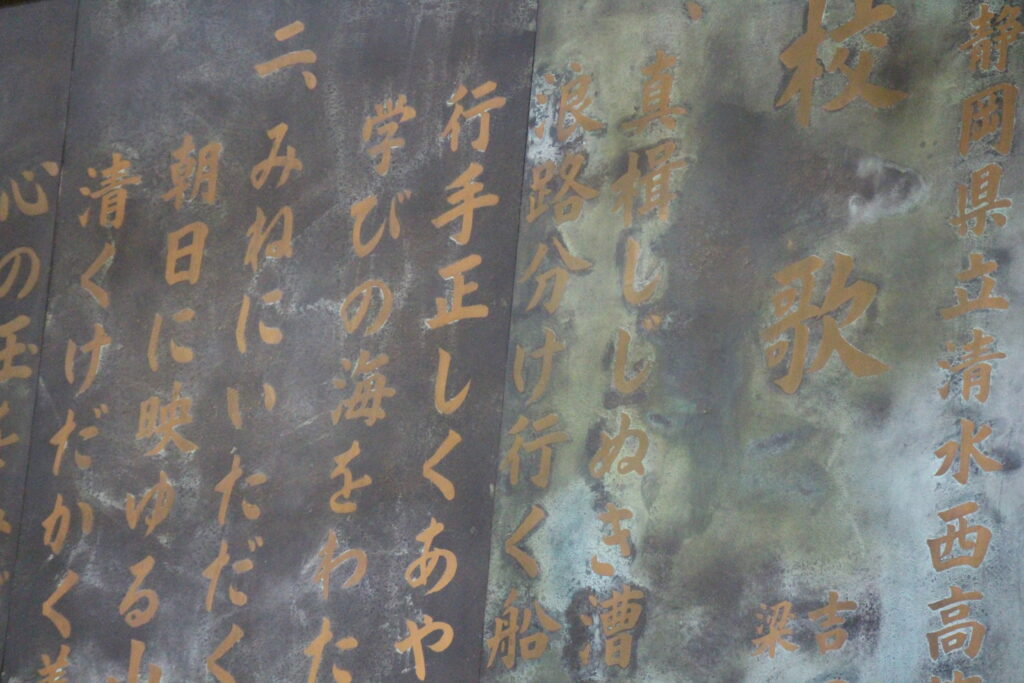 静岡県立清水西高
校歌
吉
梁
真楫しじぬき漕
浪路分け行く船
行手正しくあや
学びの海をわた
二、みねにいただく
朝日に映ゆる山
清くけだかく美
心の玉を